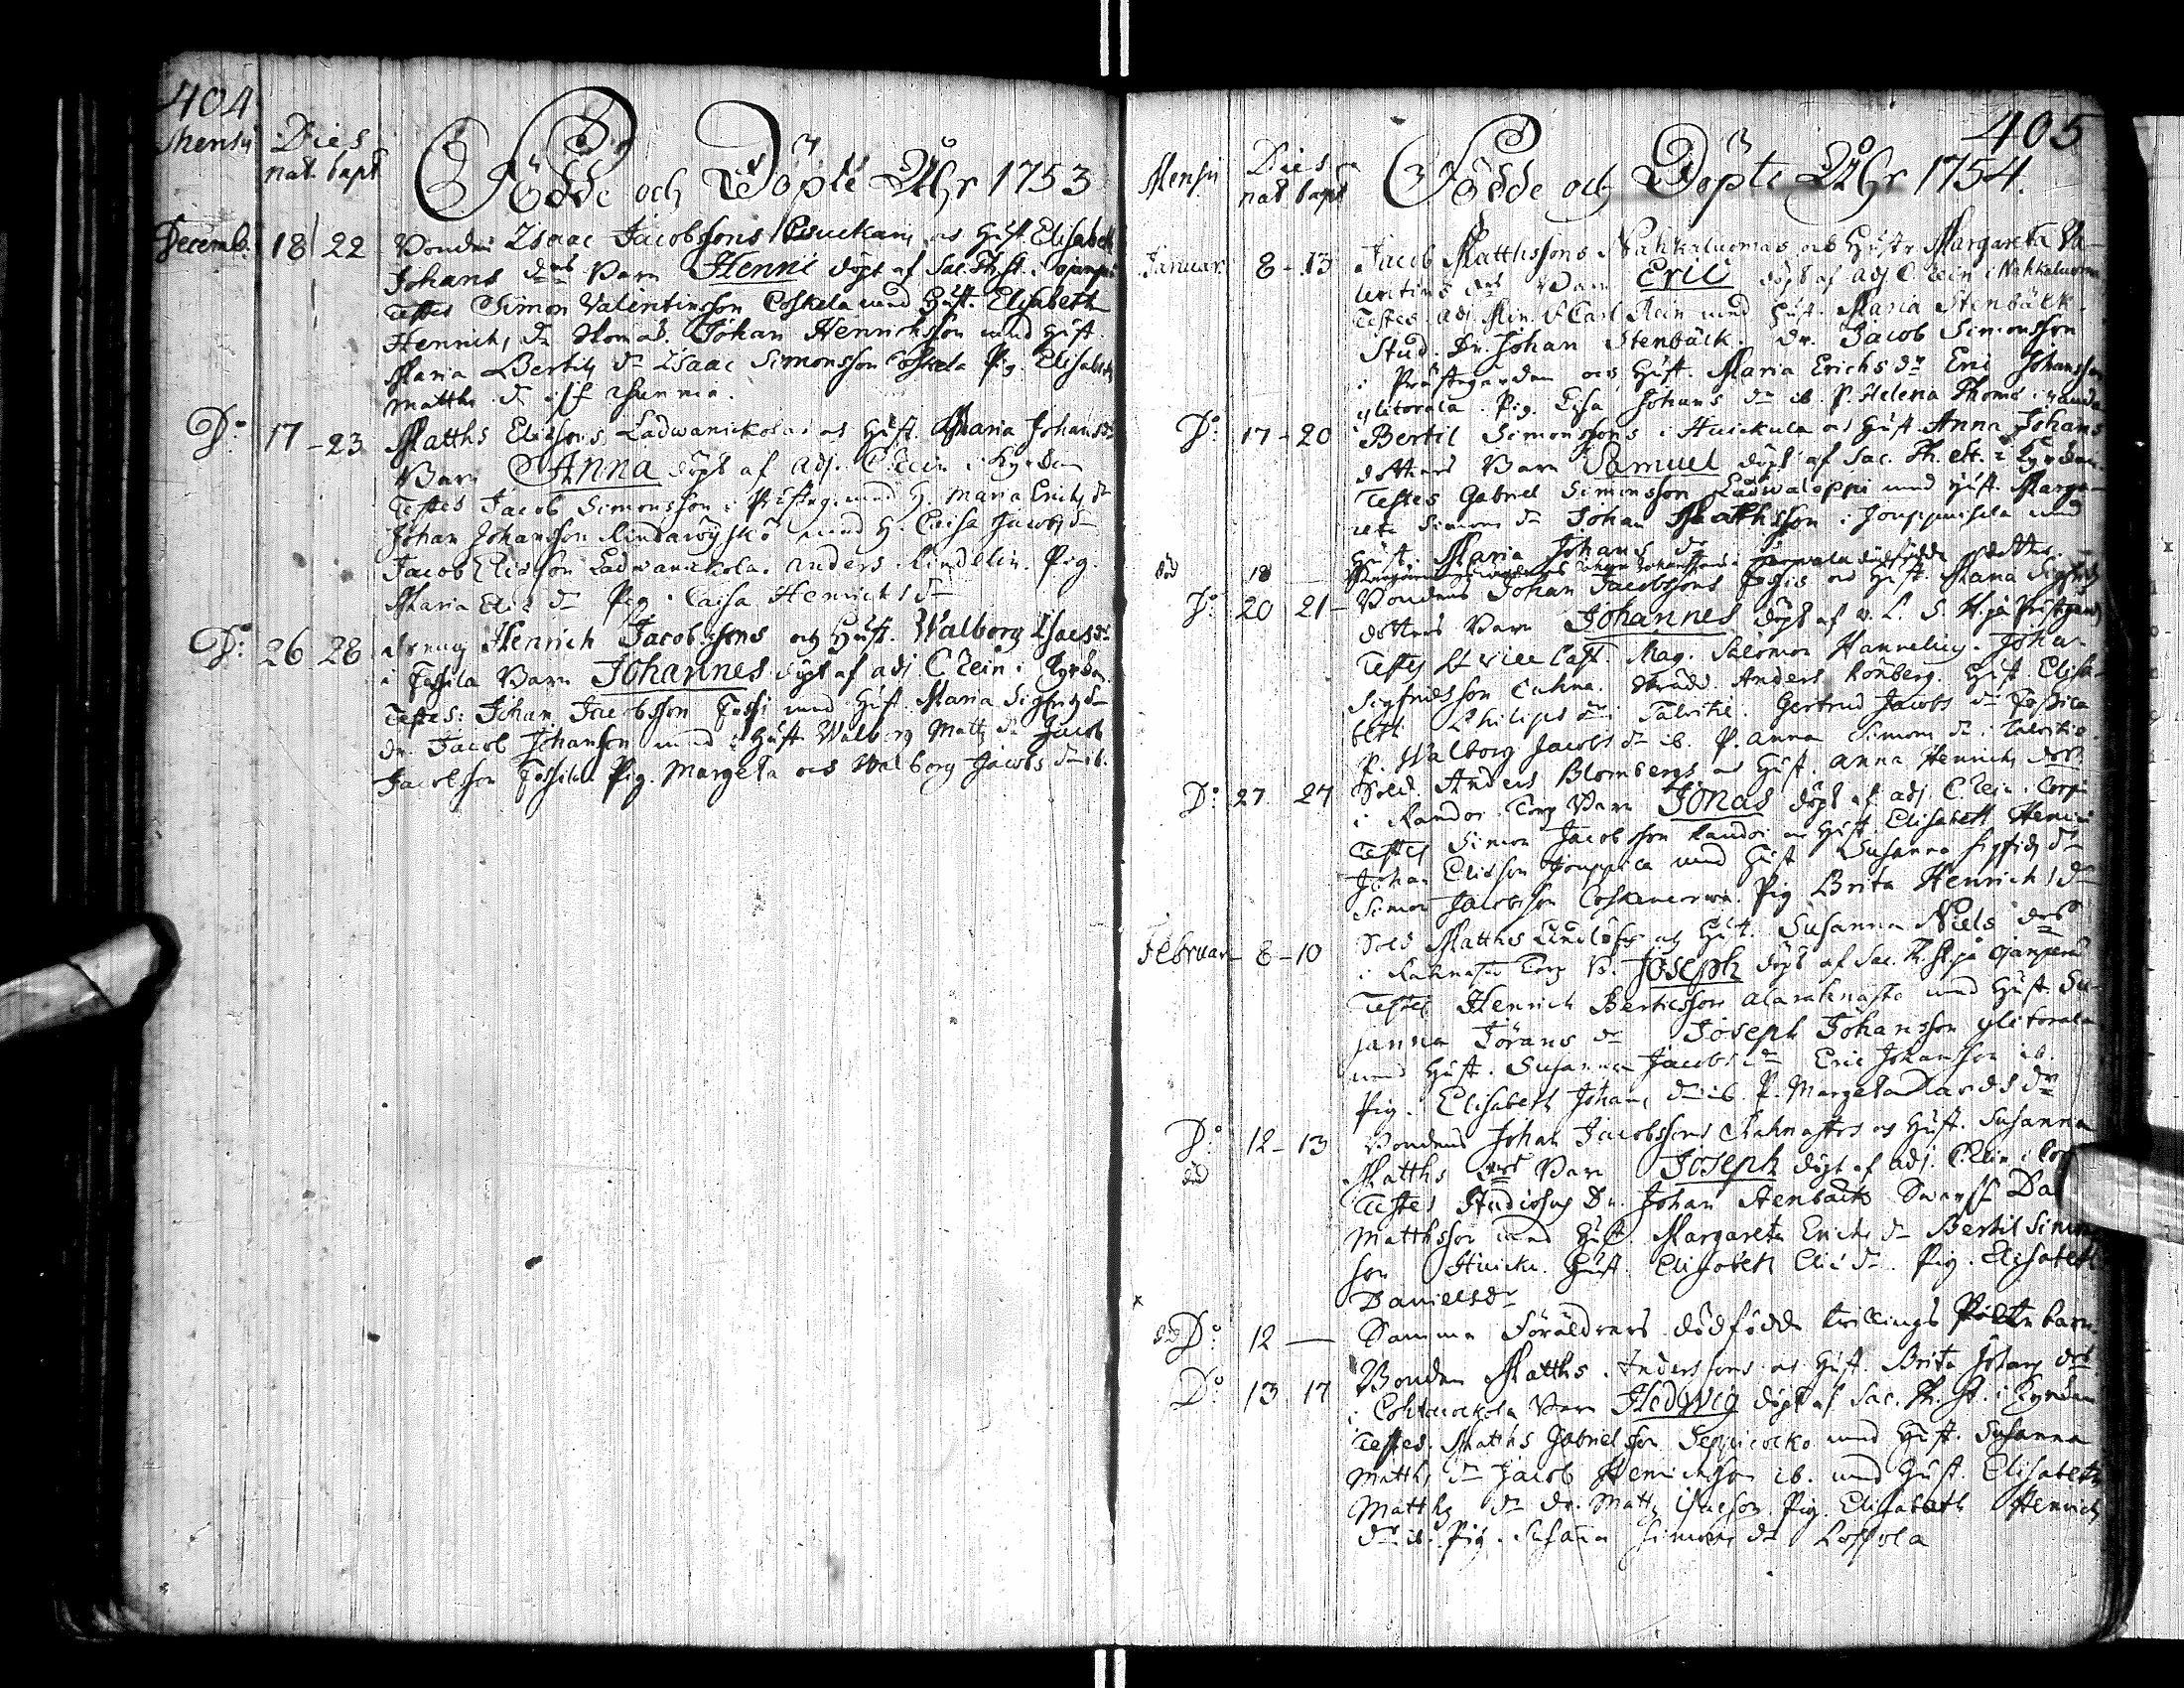 404
Mensis Dies
nat. bapt
Födde och Döpte Åhr 1753
Decemb. 18 22 Bonden Isaac Jacobssons och Hust. Elisabeth
Johans drs Barn Henric döpt af Sac. Th. St. i
Testes Simon Valentinsson Coskela med Hust. Elisabeth
Henrichs dr Johan Henrichsson med Hust.
Maria Bertils dr Isaac Simonsson Coskela Pig. Elisabeth
Matths dr
Do: 17 - 23 Matths Eliæsons Ladwanickola och Hust. Maria Johans dr
Barn Anna döpt af adj. C Rein i Kyrkan
Testes Jacob Simonsson i Prästeg. med H. Maria Erichs dr
Johan Johansson med H. Caisa Jacobs dr
Jacob Eliasson Ladwanickola. Anders Lindelin. Pig.
Maria Eliæ dr Pig. Caisa Henrichs dr
Do: 26 28 dreng Henrich Jacobssons och Hust. Walborg Isacs dr
i Fossila Barn Johannes döpt af adj C Rein i Kyrkan.
Testes: Johan Jacobsson Fossi med Hust. Maria Sigfrids dr
dr. Jacob Johansson med Hust. Walborg Matts dr Jacob
Jacobsson Fossila Pig. Margeta och Walborg Jacobs dr ib.
405
Mensis Dies
nat bapt
Födde och Döpte Åhr 1754.
Januar. 8 - 13 Jacob Matthssons Nahkaluomas och Hustr. Margareta Va-
lentins drs Barn Eric döpt af adj C Rein i Nahkaluoma
Testes. Adj. Min. Carl Rein med Hust. Maria Stenbäck.
Stud. Dn. Johan Stenbäck. Dr. Jacob Simonsson
i Prästegården och Hust. Maria Erichs dr Eric Johansson
ylitorala. Pig. Lisa Johans dr ib. P. Helena Thoms i
Do: 17 - 20 Bertil Simonssons i Huickula och Hust. Anna Johans
dotters Barn Samuel döpt af Sac. Th. St. i Kyrkan.
Testes Gabriel Simonsson Ladwaloppi med Hust. Marga-
reta Simons dr Johan Matthsson i Jouppinsela med
Hust. Maria Johans dr
död 18 Johan Johanssons dödfödde dotter.
Do: 20 21 - Bondens Johan Jacobssons Fogis och Hust. Maria Sigfrids
dotters Barn Johannes döpt af v. P. S. H. på Prästgård
Testes H vice Past. Mag. Salomon Hannelius. Johan
Sigfridsson Anders Rönberg. Hust. Elisa-
beth Philips dr Talvitie. Gertrud Jacobs dr Fossila
P. Walborg Jacobs dr ib. P. Anna Simons dr i Talvitie.
Do: 27 27 Sold. Anders Blombergs och Hust. Anna Henrichs dotr
i Randoi Torp Barn Jonas döpt af adj C Rein. Torpi
Testes Simon Jacobsson Randoi och Hust. Elisabeth Henrici
Johan Eliæson Jouppila med Hust. Susanna Sigfrids dr
Simon Jacobsson Pig Brita Henrichs dr
Februar - 8 - 10 Sold Matths Lindlöfs och Hust. Susanna Niels drs
i Torp B. Joseph döpt af Sac. Th. St. på
Testes Henrich Bertilsson Alarahnasto med Hust. Su-
sanna Jörans dr Joseph Johansson ylitorala
med Hust. Susanna Jacobs dr Eric Johansson ib.
Pig. Elisabeth Johans dr ib. P. Margeta Lards dr
Do: 12 - 13 Bondens Johan Jacobssons Rahnastos och Hust. Susanna
död Matths drs Barn Joseph döpt af adj. C Rein i
Testes Studiosus Dn. Johan Stenbäck
Matthsson med Hust. Margareta Erichs dr Bertil Simon
son Huicku. Hust. Elisabeth Eliæ dr. Pig. Elisabeth
Danielsdr
x
död Do: 12 — Samma Föräldrars dödfödde twillings barn.
Do: 13 17 Bonden Matths Anderssons och Hust. Brita Johans drs
i Barn Hedwig döpt af Sac. Th. St. i Kyrkan
Testes. Matths Gabrielsson med Hust. Susanna
Matths dr Jacob Henrichsson ib. med Hust. Elisabeth
Matths dr dr. Matts Isacson. Pig. Elisabeth Henrich
dr ib. Pig. Susanna Simons dr